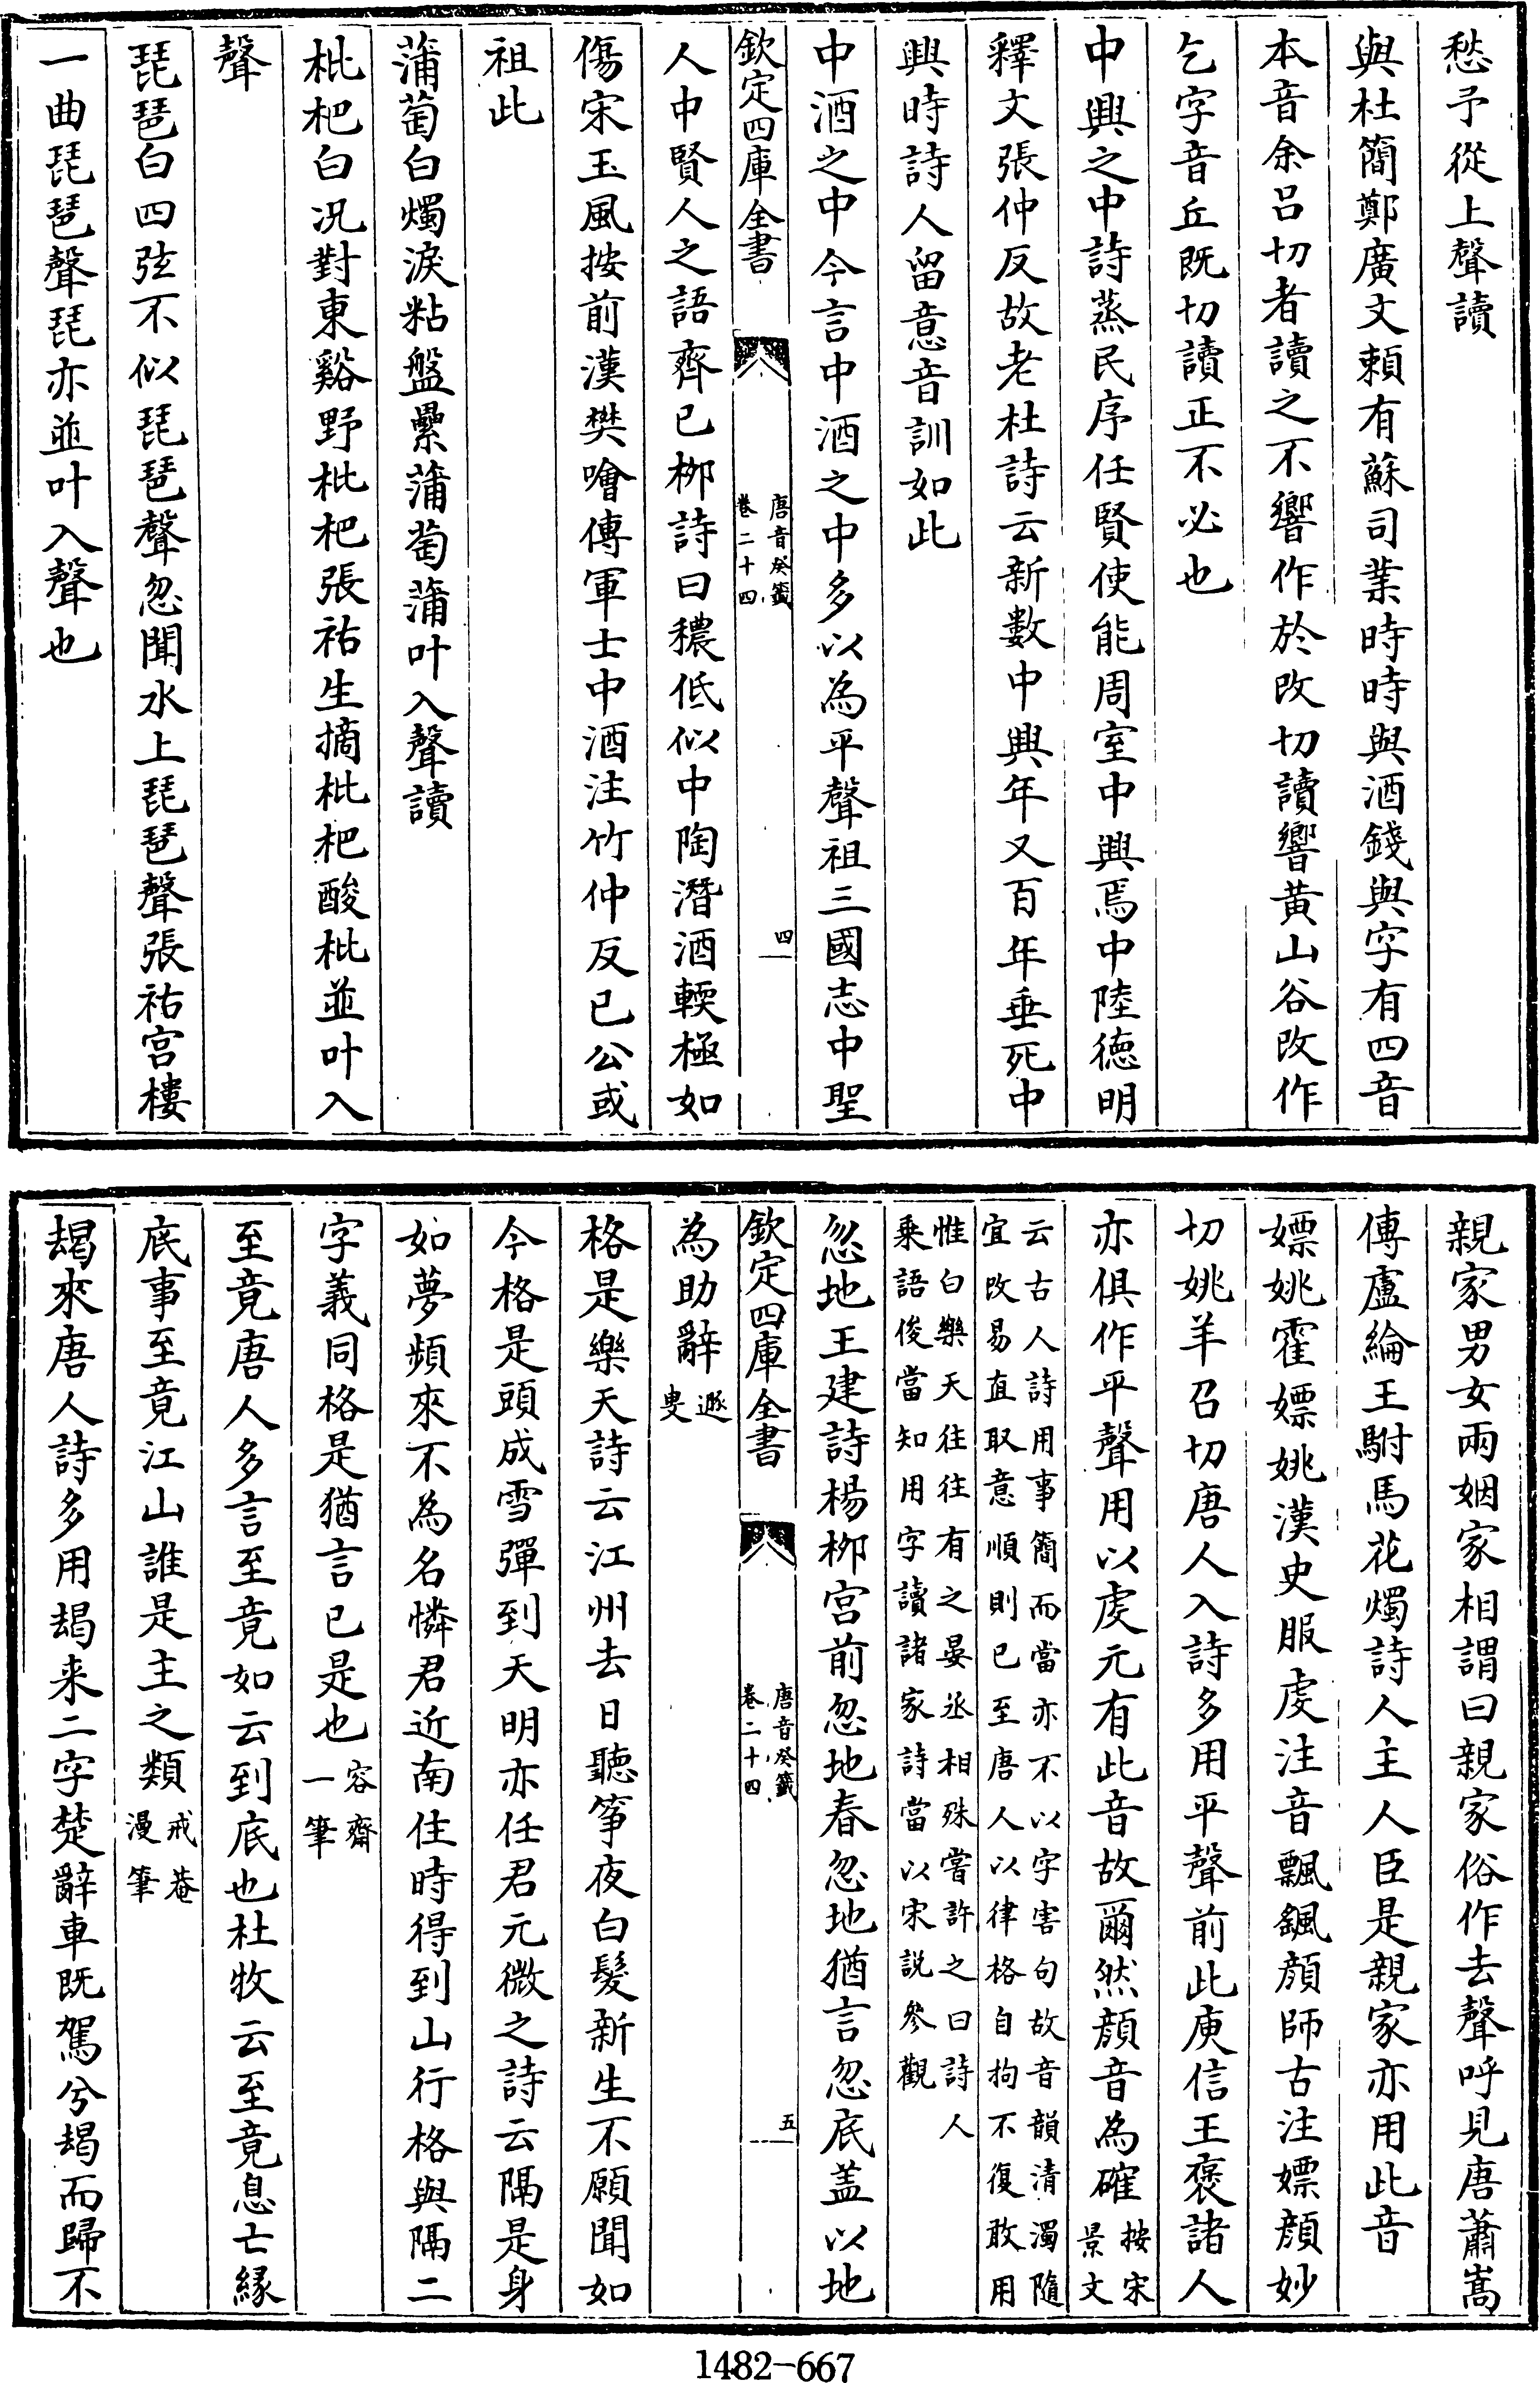 愁予從上聲讀
與杜簡鄭廣文賴有蘇司業時時與酒錢與字有四音
本音余吕切者讀之不響作於改切讀響黃山谷改作
乞字音丘既切讀正不必也
中興之中詩蒸民序任賢使能周室中興焉中陸德明
釋文張仲反故老杜詩云新數中興年又百年垂死中
興時詩人留意音訓如此
中酒之中今言中酒之中多以為平聲祖三國志中聖
欽定四庫全書
唐音癸籤
卷二十四
四
人中賢人之語齊已栁詩曰穠低似中陶潛酒輭極如
傷宋玉風按前漢樊噲傳軍士中酒注竹仲反已公或
祖此
蒲萄白燭淚粘盤纍蒲萄蒲叶入聲讀
枇杷白况對東谿野枇杷張祐生摘枇杷酸枇並叶入
聲
琵琶白四弦不似琵琶聲忽聞水上琵琶聲張祐宮樓
一曲琵琶聲琵亦並叶入聲也
親家男女兩姻家相謂曰親家俗作去聲呼見唐蕭嵩
傳盧綸王駙馬花燭詩人主人臣是親家亦用此音
嫖姚霍嫖姚漢史服虔注音飄飖顔師古注嫖顔妙
切姚羊召切唐人入詩多用平聲前此庾信王褒諸人
亦俱作平聲用以虔元有此音故爾然顔音為確按宋
景文
云古人詩用事簡而當亦不以字害句故音韻清濁隨
宜改易直取意順則已至唐人以律格自拘不復敢用
惟白樂天往往有之晏丞相殊嘗許之曰詩人
乗語俊當知用字讀諸家詩當以宋説參觀
忽地王建詩楊栁宮前忽地春忽地猶言忽底盖以地
欽定四庫全書
唐音癸籤
卷二十四
五
為助辭遯
叟
格是樂天詩云江州去日聽筝夜白髮新生不願聞如
今格是頭成雪彈到天明亦任君元微之詩云隔是身
如夢頻來不為名憐君近南住時得到山行格與隔二
字義同格是猶言已是也容齋
一筆
至竟唐人多言至竟如云到底也杜牧云至竟息亡緣
底事至竟江山誰是主之類戒菴
漫筆
朅來唐人詩多用朅来二字楚辭車既駕兮朅而歸不
1482-667